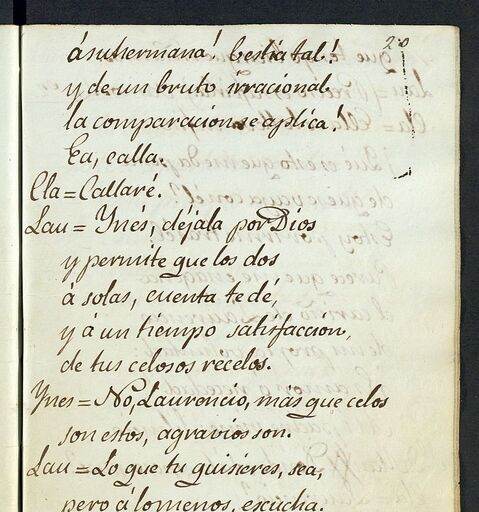 20
á su hermana! bestia tal!
y de un bruto irracional
la comparacion se aplica!
Ea, calla.
Cla = Callaré.
Lau = Ynés, déjala por Dios
y permite que los dos
á solas, cuenta te dé,
y á un tiempo satisfaccion,
de tus celosos recelos.
Ynes = No, Laurencio, más que celos
son estos, agravios son.
Lau = Lo que tu quisieres, sea,
pero á lo menos, escucha.